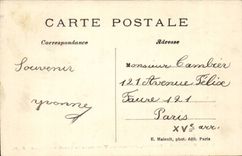 CARTE POSTALE
Correspondance
Adresse
Souvenir
Yvonne
Monsieur Cambier
121 Avenue Félix
Faure 121
Paris
XVe arr.
E. Malcuit, phot. édit. Paris